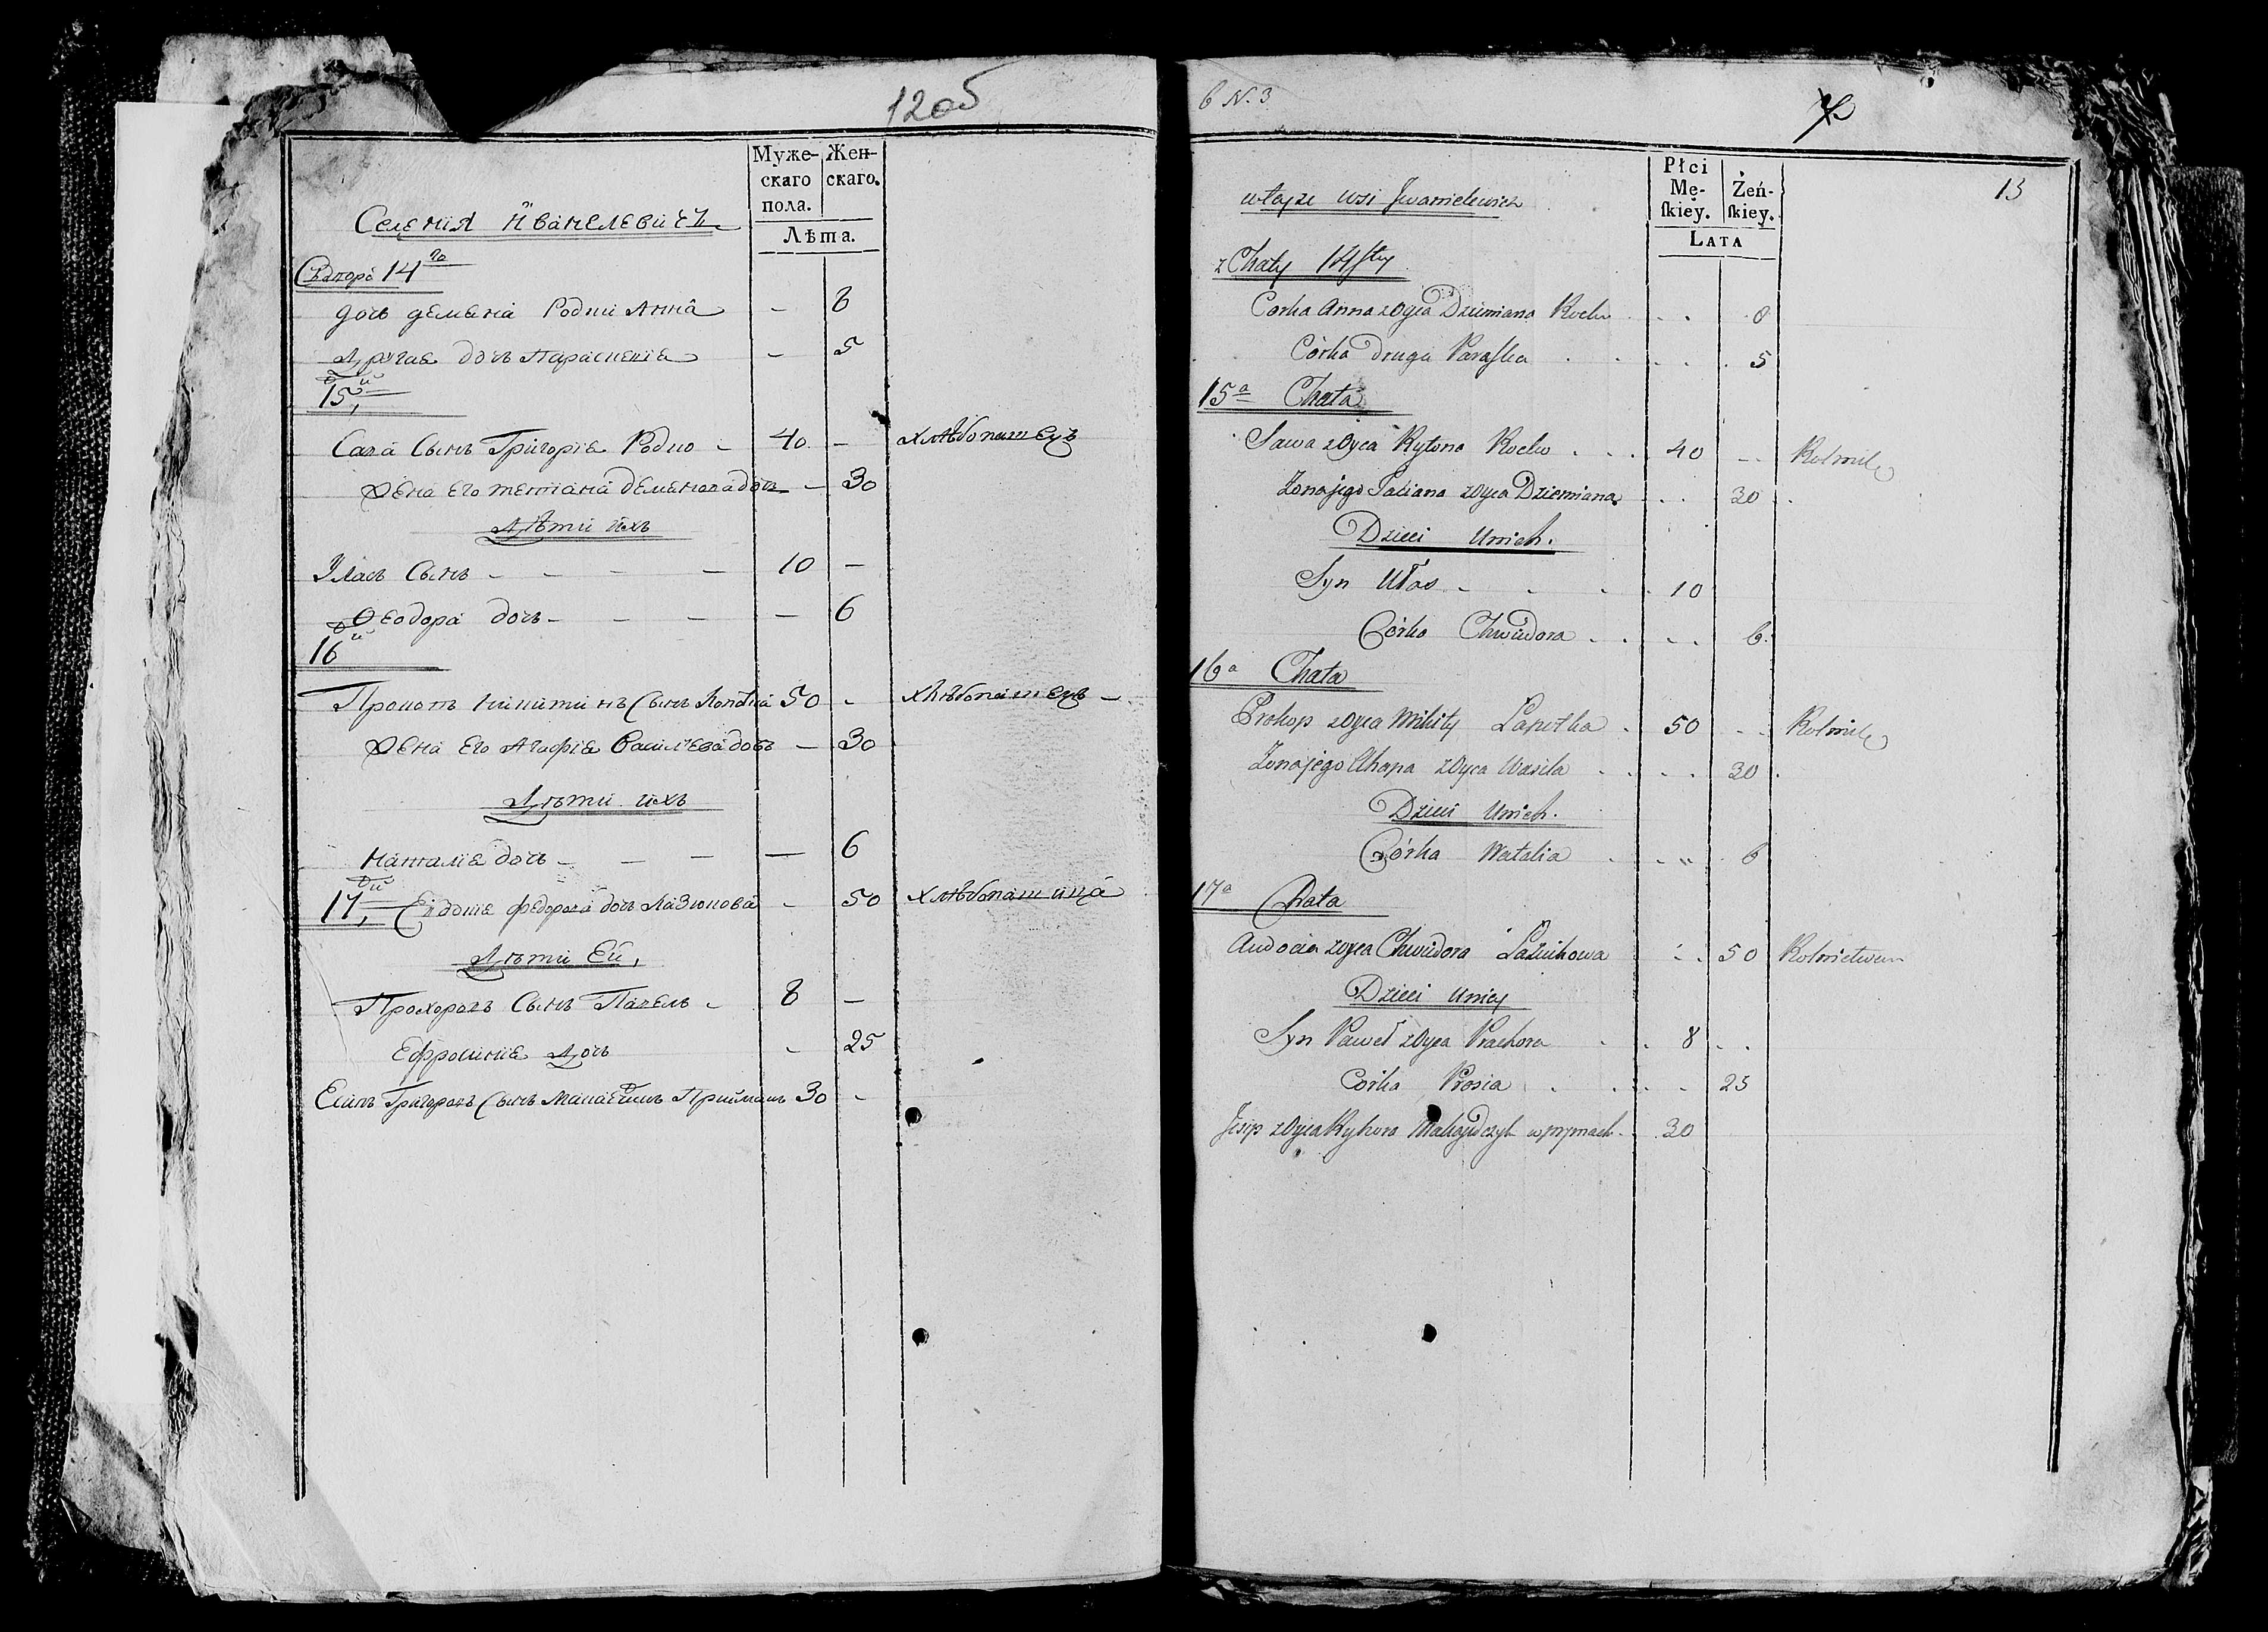 12об
Муже- Жен-
скаго скаго.
пола.
Лѣта.
Селенія Иванелевичъ
Сѣдпора 14го
дочь демена Родки Анна — 8
Другая дочь Параскевія — 5
15й
Сава Сынъ Григорія Родко — 40 — хлѣбопашецъ
Жена его тетіана деменова дочь — 30
Дѣти ихъ
Улас Сынъ — — — — 10 —
Ѳеодора дочь — — — — 6
16й
Прокопъ Никитинъ Сынъ Лапотка 50 — хлѣбопашецъ —
Жена его Агафія Василева дочь — 30
Дѣти ихъ
Наталія дочь — — — — 6
17й Евдокія федорова дочь Лазюкова — 50 хлѣбопашица
Дѣти Ей,
Прохоровъ Сынъ Павелъ — 8 —
Ефросинія Дочь — 25
Есипъ Григоровъ Сынъ Макаетчикъ Приймакъ 30 —
6 N. 3
13
Płci
Mę- Żeń-
skiey. skiey.
LATA
włayze wsi Jwanielewicz
z Chaty 14stey
Corka Anna z Oyca Dziemiana Rocko . . . 8
Córka druga Paraska . . . . . 5
15a Chata
Sawa z Oyca Ryhora Rocko . . . 40 — Rolnik
Zona jego Taciana z Oyca Dziemiana . . 30 .
Dzieci Unich.
Syn Ułas . . . 10
Córka Chwiedora . . . . 6.
16a Chata
Prokop z Oyca Mikity Lapotka . 50 . . Rolnik
Zona jego Ahapa z Oyca Wasila . . . . 30 .
Dzieci Unich.
Córka Natalia . . . . 6
17a Chata
Audocia z Oyca Chwiedora Łaziukowa . . 50 Rolnictwem
Dzieci Uniey
Syn Paweł z Oyca Prachora . . 8 . .
Corka Prosia . . . . 25
Jesip z Oyca Ryhora Makaydczyk w prymach . 30